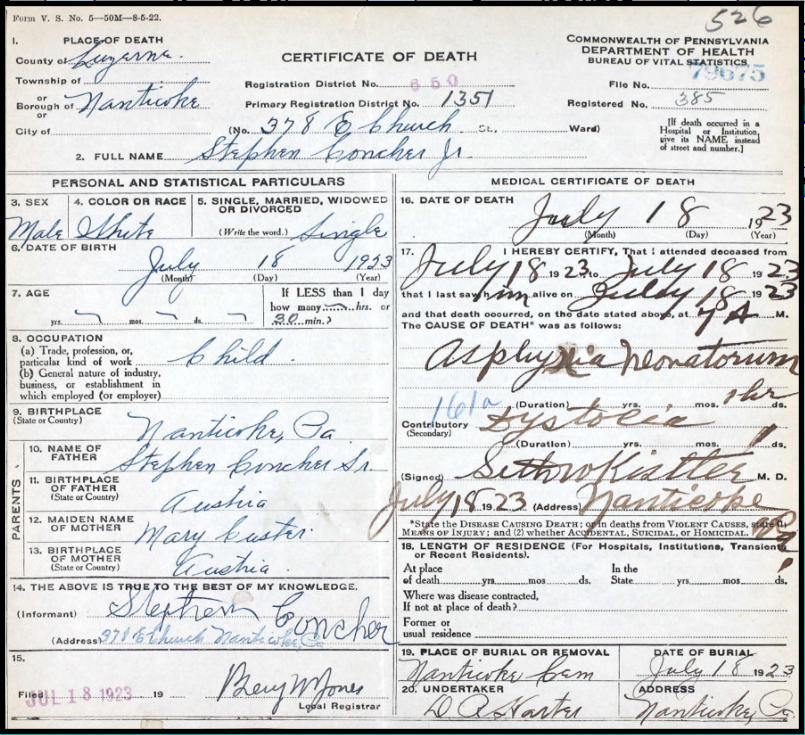 Form V. S. No. 5—50M—8-5-22.
526
1. PLACE OF DEATH
County of Luzerne.
Township of
or
Borough of Nanticoke
or
City of
CERTIFICATE OF DEATH
Registration District No. 650
Primary Registration District No. 1351
(No. 378 E Church St. Ward)
COMMONWEALTH OF PENNSYLVANIA
DEPARTMENT OF HEALTH
BUREAU OF VITAL STATISTICS
File No. 79675
Registered No. 385
[If death occurred in a
Hospital or Institution,
give its NAME instead
of street and number.]
2. FULL NAME Stephen Concher Jr.
PERSONAL AND STATISTICAL PARTICULARS
3. SEX 4. COLOR OR RACE 5. SINGLE, MARRIED, WIDOWED
OR DIVORCED
Male White (Write the word.) Single
6. DATE OF BIRTH
July 18 1923
(Month) (Day) (Year)
7. AGE
If LESS than 1 day
how many hrs. or
yrs. mos. ds. 30 min.?
8. OCCUPATION
(a) Trade, profession, or,
particular kind of work Child.
(b) General nature of industry,
business, or establishment in
which employed (or employer)
9. BIRTHPLACE
(State or Country)
Nanticoke, Pa
PARENTS
10. NAME OF
FATHER
Stephen Concher Sr.
11. BIRTHPLACE
OF FATHER
(State or Country)
Austria
12. MAIDEN NAME
OF MOTHER
Mary Custer.
13. BIRTHPLACE
OF MOTHER
(State or Country)
Austria.
14. THE ABOVE IS TRUE TO THE BEST OF MY KNOWLEDGE.
(Informant) Stephen Concher
(Address) 378 E Church Nanticoke, Pa
15.
Filed JUL 18 1923 19
Local Registrar
MEDICAL CERTIFICATE OF DEATH
16. DATE OF DEATH
July 18 1923
(Month) (Day) (Year)
17. I HEREBY CERTIFY, That I attended deceased from
July 18 1923 to July 18 1923
that I last saw him alive on July 18 1923
and that death occurred, on the date stated above, at A M.
The CAUSE OF DEATH* was as follows:
Asphyxia Neonatorum
(Duration) yrs. mos. 1 hr ds.
161a
Contributory Dystocia
(Secondary)
(Duration) yrs. mos. ds.
(Signed) Seth W Kistler M. D.
July 18 1923 (Address) Nanticoke Pa.
*State the DISEASE CAUSING DEATH; or in deaths from VIOLENT CAUSES, state (1)
MEANS OF INJURY; and (2) whether ACCIDENTAL, SUICIDAL, or HOMICIDAL.
18. LENGTH OF RESIDENCE (For Hospitals, Institutions, Transients
or Recent Residents).
At place In the
of death yrs. mos. ds. State yrs. mos. ds.
Where was disease contracted,
If not at place of death?
Former or
usual residence
19. PLACE OF BURIAL OR REMOVAL DATE OF BURIAL
Nanticoke Cem July 18 1923
20. UNDERTAKER ADDRESS
Nanticoke, Pa.